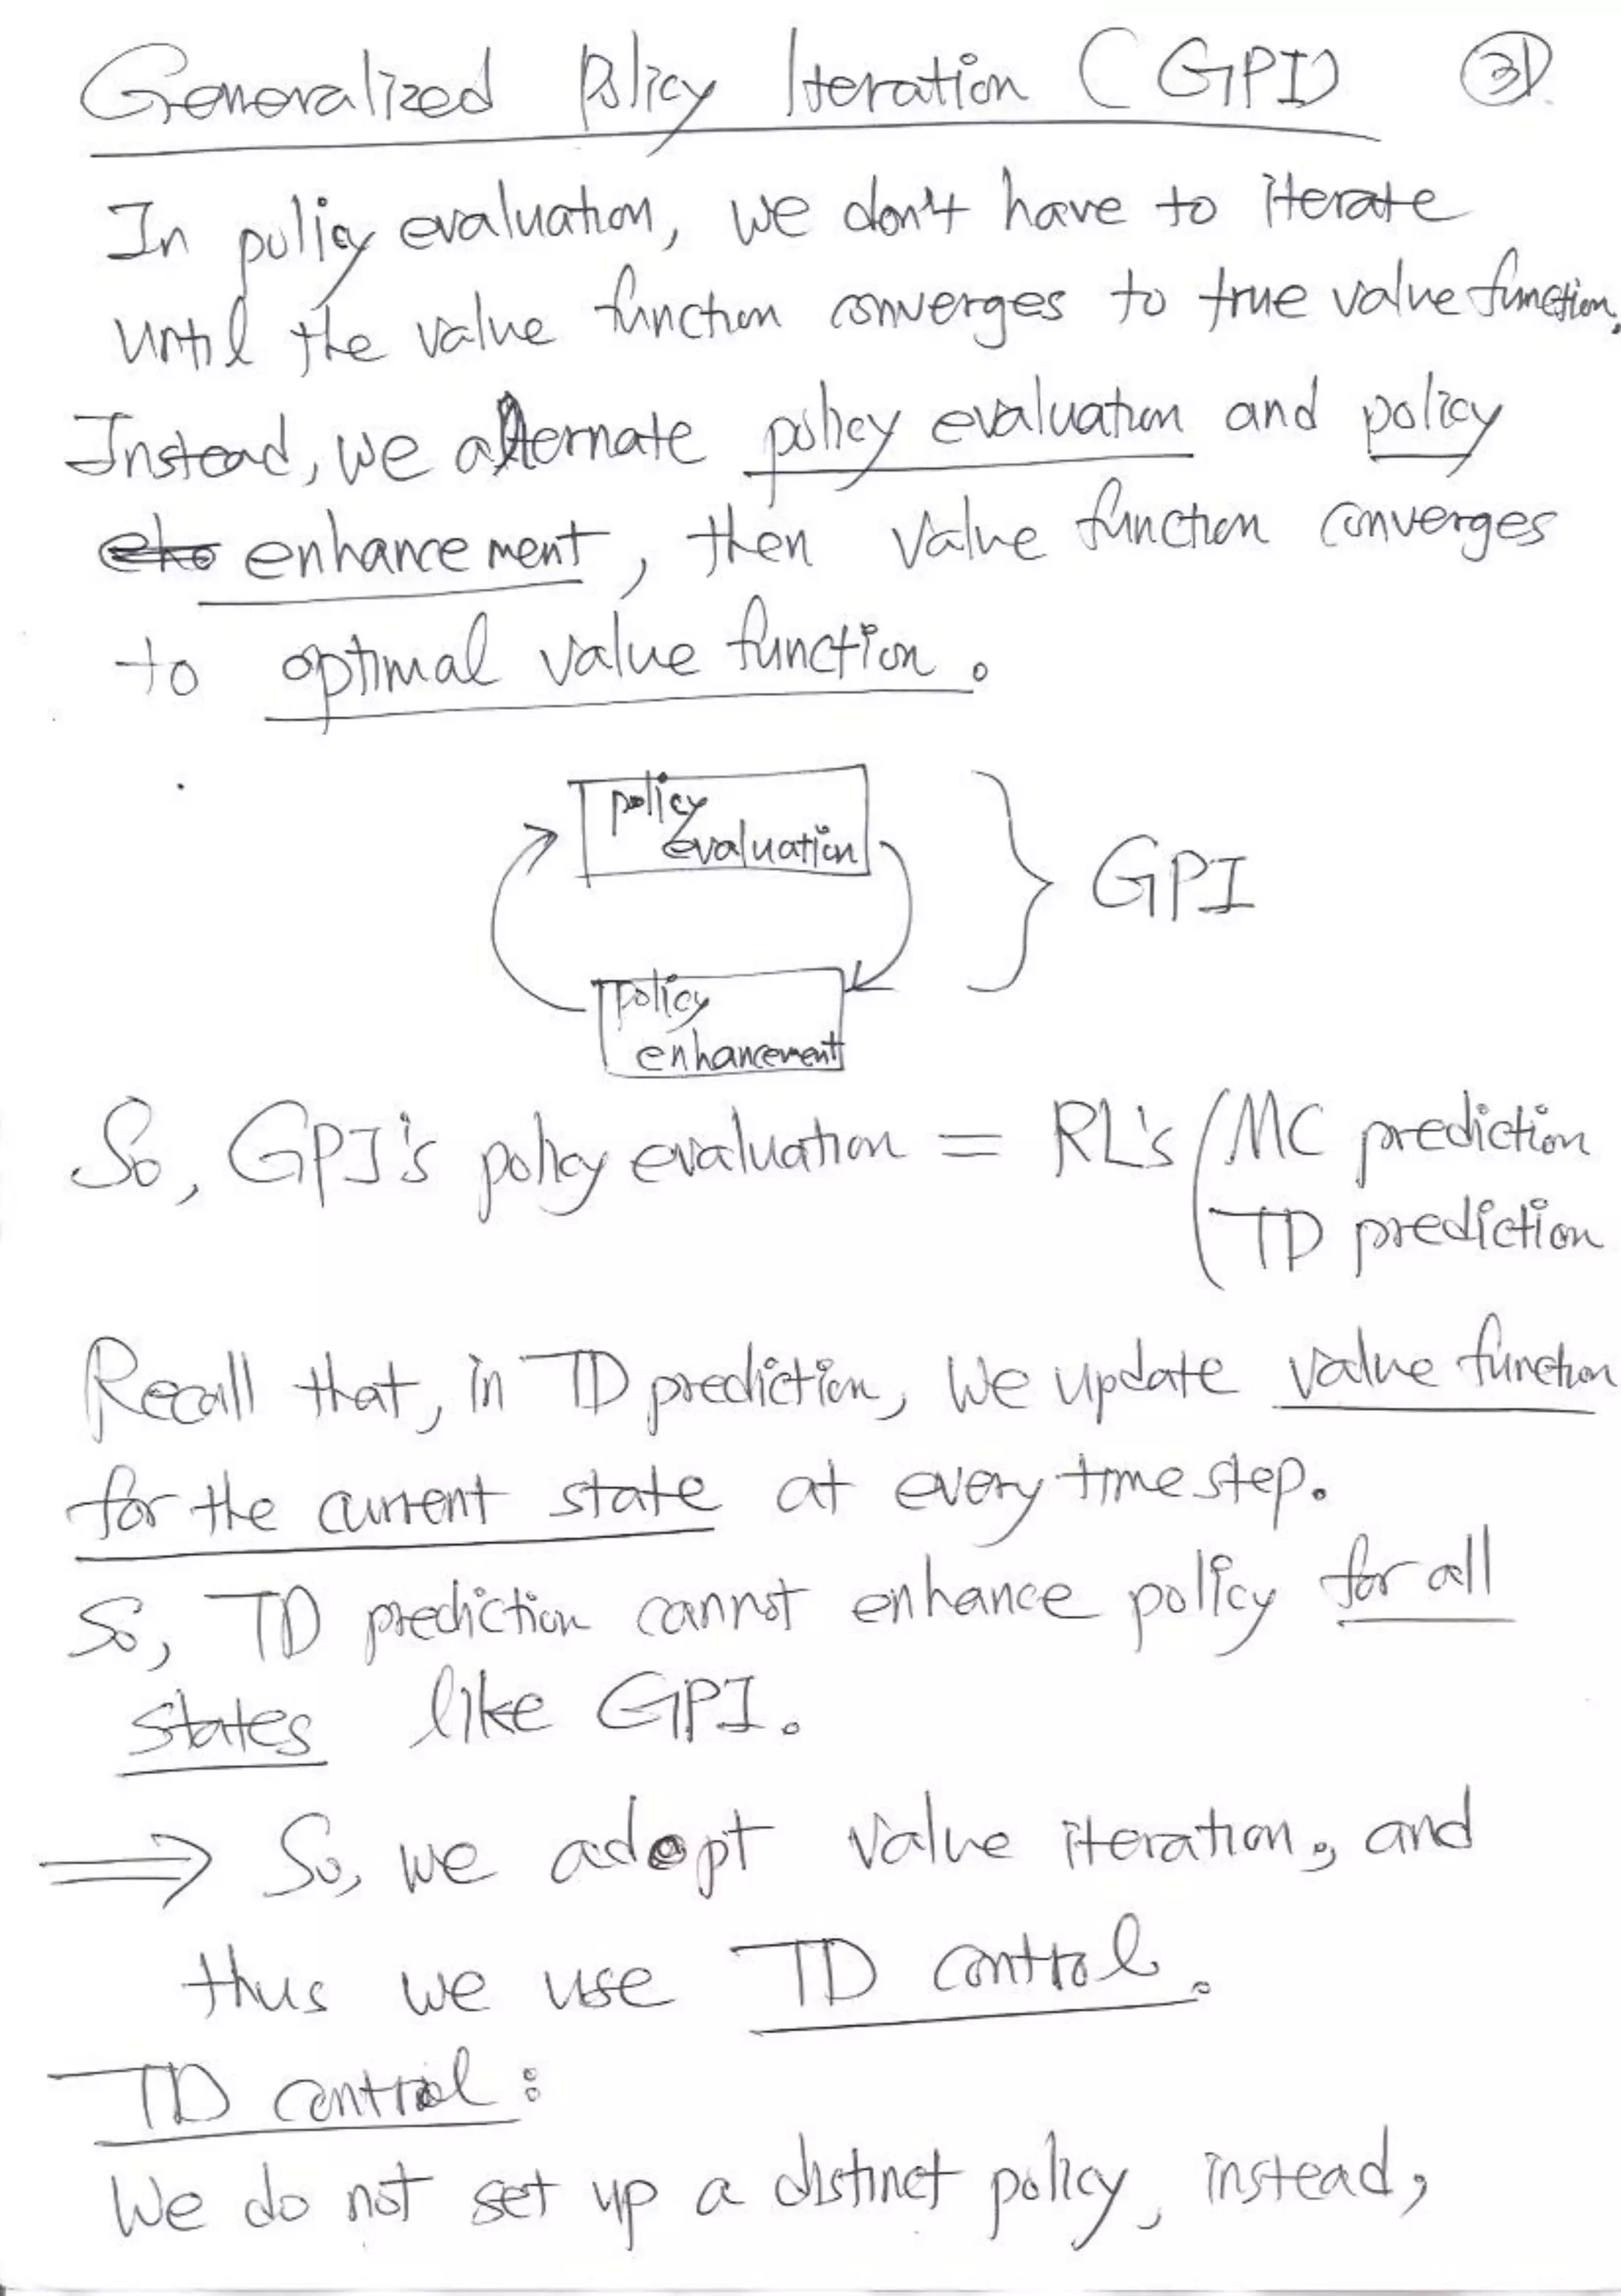 Generalized Policy Iteration (GPI) 31
In policy evaluation, we don't have to iterate
until the value function converges to true value function.
Instead, we alternate policy evaluation and policy
enhancement, then value function converges
to optimal value function.
policy
evaluation
GPI
policy
enhancement
So, GPI's policy evaluation = RL's ( MC prediction
TD prediction
Recall that, in TD prediction, we update value function
for the current state at every time step.
So, TD prediction cannot enhance policy for all
states like GPI.
⇒ So, we adopt value iteration, and
thus we use TD control.
TD control:
We do not set up a distinct policy, instead,